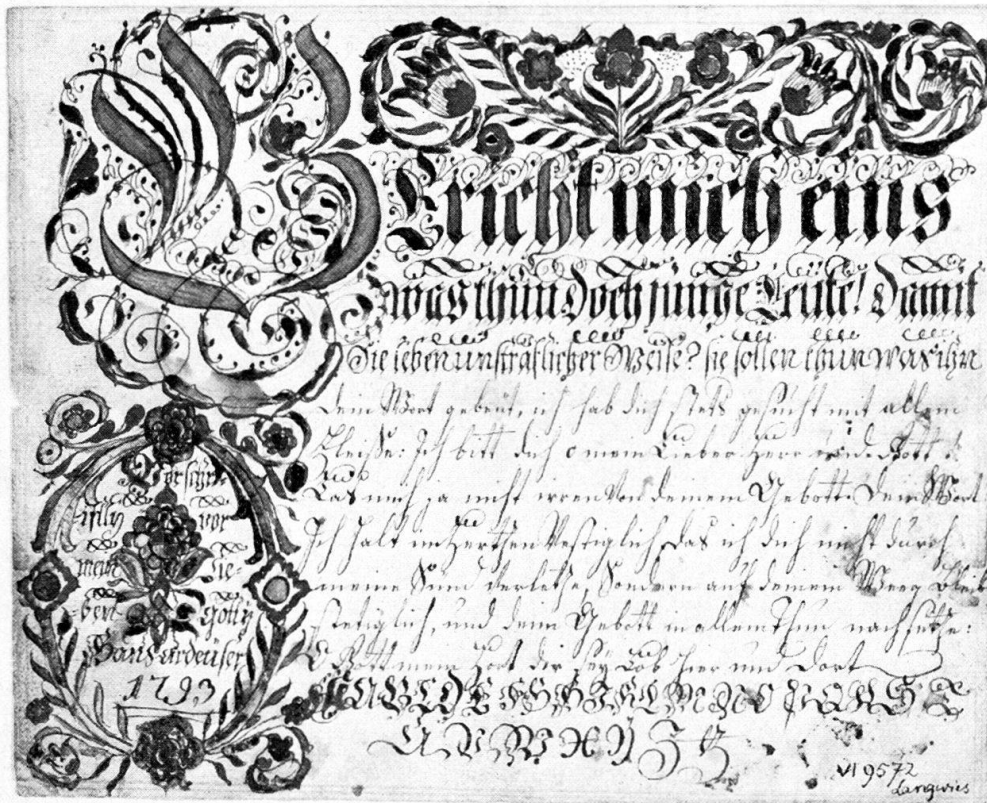 Bricht mich eins
was thun doch junge Leute! damit
Sie leben unsträflicher Weise? sie sollen thun was ihn
dein Wort gebeut, ich hab dich stets gesucht mit allem
Fleiße: Ich bitt dich o mein Lieber Herr und Gott
Las mich ja nicht irren von deinem Gebott. Dein Wort
Ich halt im Hertzen Vestiglich, das ich dich nicht durch
meine Sünd verletze, Sondern auf deinem Weeg bleib
stetiglich, und dein Gebott in allem Thun nachsetze:
O Gott mein Hort dir sey Lob hier und dort
A B C D E F G H I K L M N O P Q R S T
U V W X Y Z
vor
mein
Hans
1793
VI 9572
Langwies